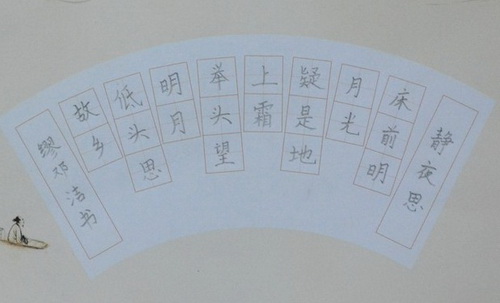 静夜思
床前明
月光
疑是地
上霜
举头望
明月
低头思
故乡
缪邓洁书